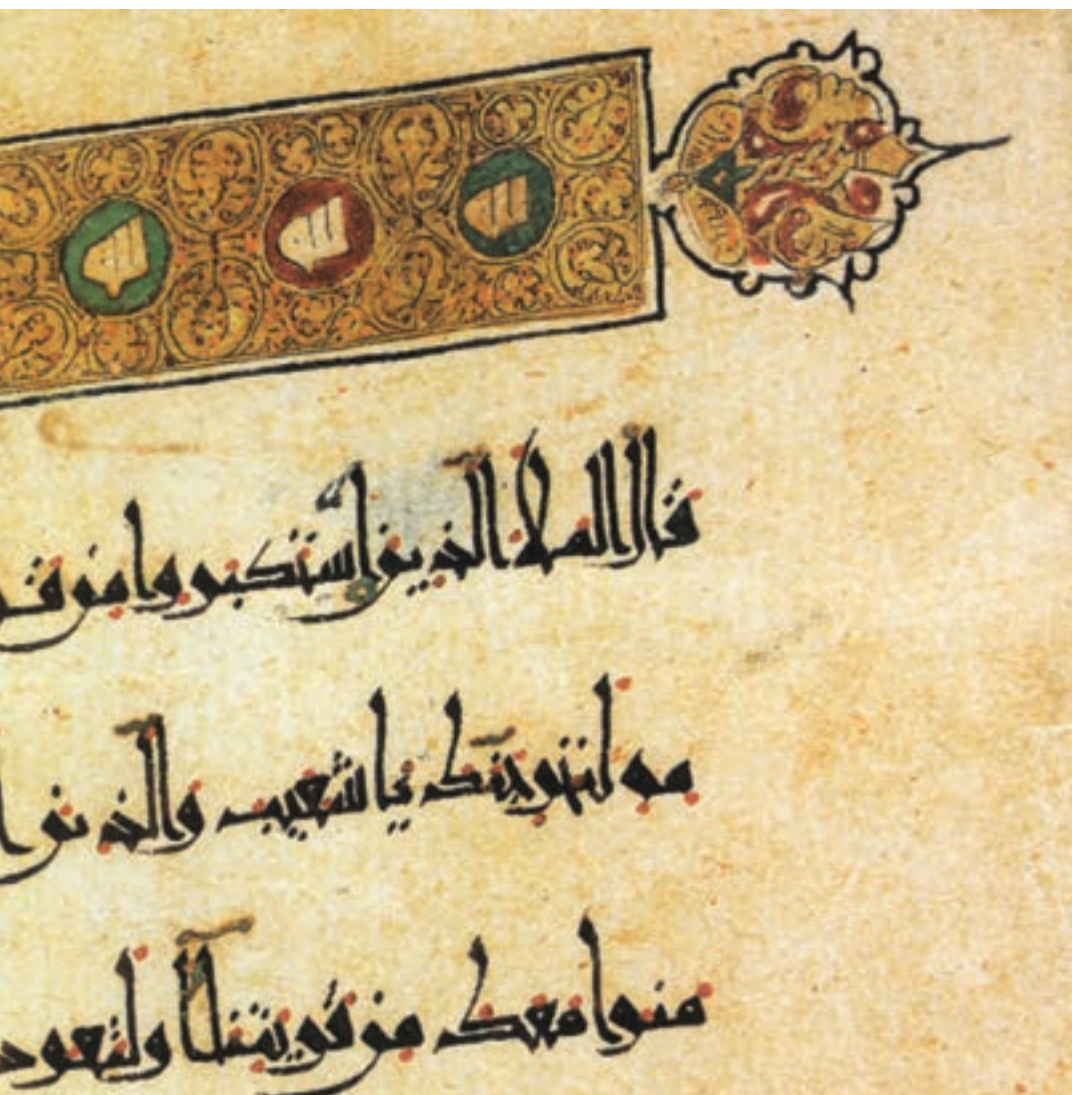 قال الملا الذين استكبروا من قو
مه لنخرجنك ياشعيب والذين ا
منوا معك من قريتنا او لتعود